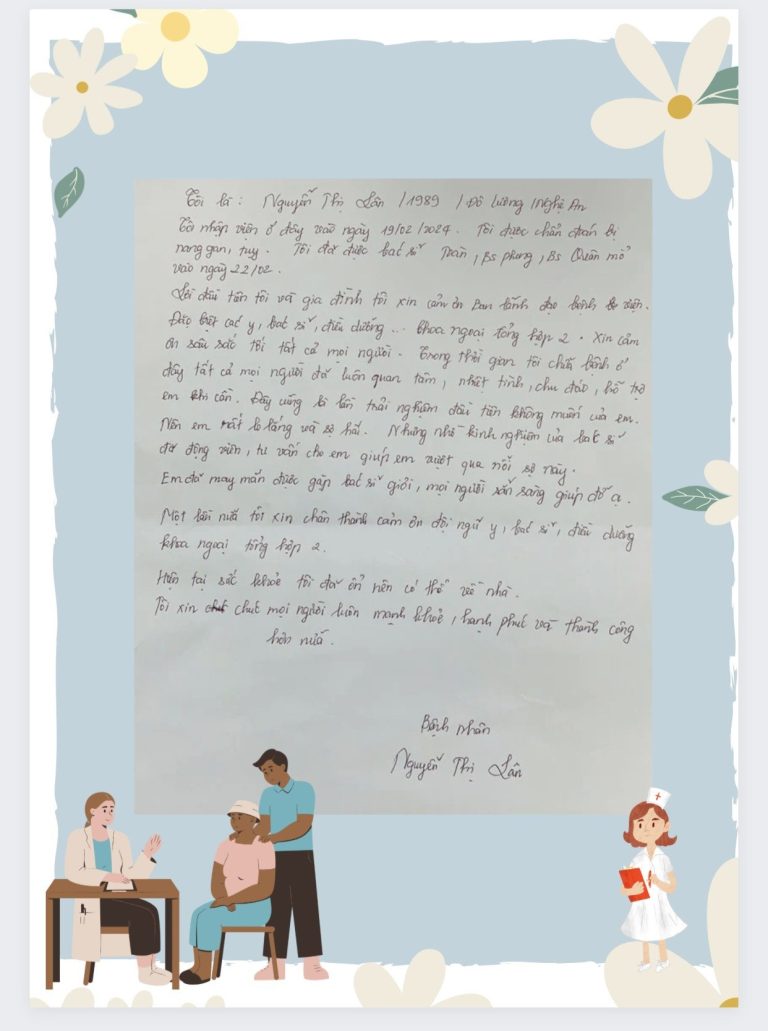 Tôi là : Nguyễn Thị Lân / 1989 / Đô Lương / Nghệ An
Tôi nhập viện ở đây vào ngày 19/02/2024. Tôi được chẩn đoán bị
nang gan, tụy. Tôi đã được bác sĩ Toàn, Bs phụng, Bs Quân mổ
vào ngày 22/02.
Lời đầu tiên tôi và gia đình tôi xin cảm ơn Ban lãnh đạo bệnh viện.
Đặc biệt các y, bác sĩ, điều dưỡng... khoa ngoại tổng hợp 2. Xin cảm
ơn sâu sắc tới tất cả mọi người. Trong thời gian tôi chữa bệnh ở
đây tất cả mọi người đã luôn quan tâm, nhiệt tình, chu đáo, hỗ trợ
em khi cần. Đây cũng là lần trải nghiệm đầu tiên không muốn của em.
Nên em rất lo lắng và sợ hãi. Nhưng nhờ kinh nghiệm của bác sĩ
đã động viên, tư vấn cho em giúp em vượt qua nỗi sợ này.
Em đã may mắn được gặp bác sĩ giỏi, mọi người sẵn sàng giúp đỡ ạ.
Một lần nữa tôi xin chân thành cảm ơn đội ngũ y, bác sĩ, điều dưỡng
khoa ngoại tổng hợp 2.
Hiện tại sức khoẻ tôi đã ổn nên có thể về nhà.
Tôi xin chúc mọi người luôn mạnh khoẻ, hạnh phúc và thành công
hơn nữa.
Bệnh nhân
Nguyễn Thị Lân